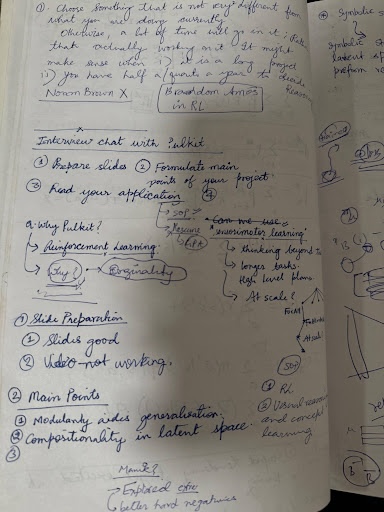 ①. Choose something that is not very different from
what you are doing currently.
Otherwise, a lot of time will go in it : Rather
that actually working on it. It might
make sense when i) it is a long project
ii) you have half a/quarter a year to decide
Noam Brown X
Brandon Amos
in RL
Reason
Interview chat with Pulkit
① Prepare slides ② Formulate main
points of your project
③ Read your application ④
→ SOP
→ Resume
→ GPA
Can we use
"sensorimotor learning"
→ thinking beyond
→ longer tasks.
High level plans
→ At scale?
Q. Why Pulkit?
→ Reinforcement Learning.
→ Why? Originality
① Slide Preparation
① Slides good
② Video not working.
SOP
① RL
② Visual
and concept
learning
② Main Points
① Modularity aides generalisation.
② Compositionality in latent space.
③
→ Explored
→ better hard negatives
④ Symbolic
Symbolic
latent